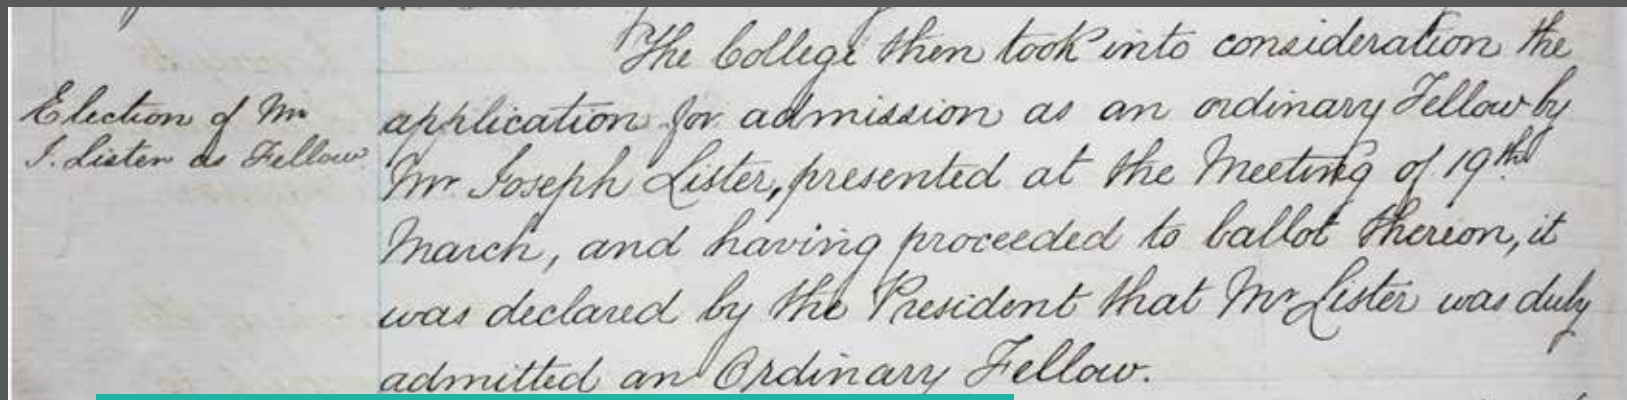 Election of Mr
J. Lister as Fellow
The College then took into consideration the
application for admission as an ordinary Fellow by
Mr. Joseph Lister, presented at the Meeting of 19th
March, and having proceeded to ballot thereon, it
was declared by the President that Mr Lister was duly
admitted an Ordinary Fellow.